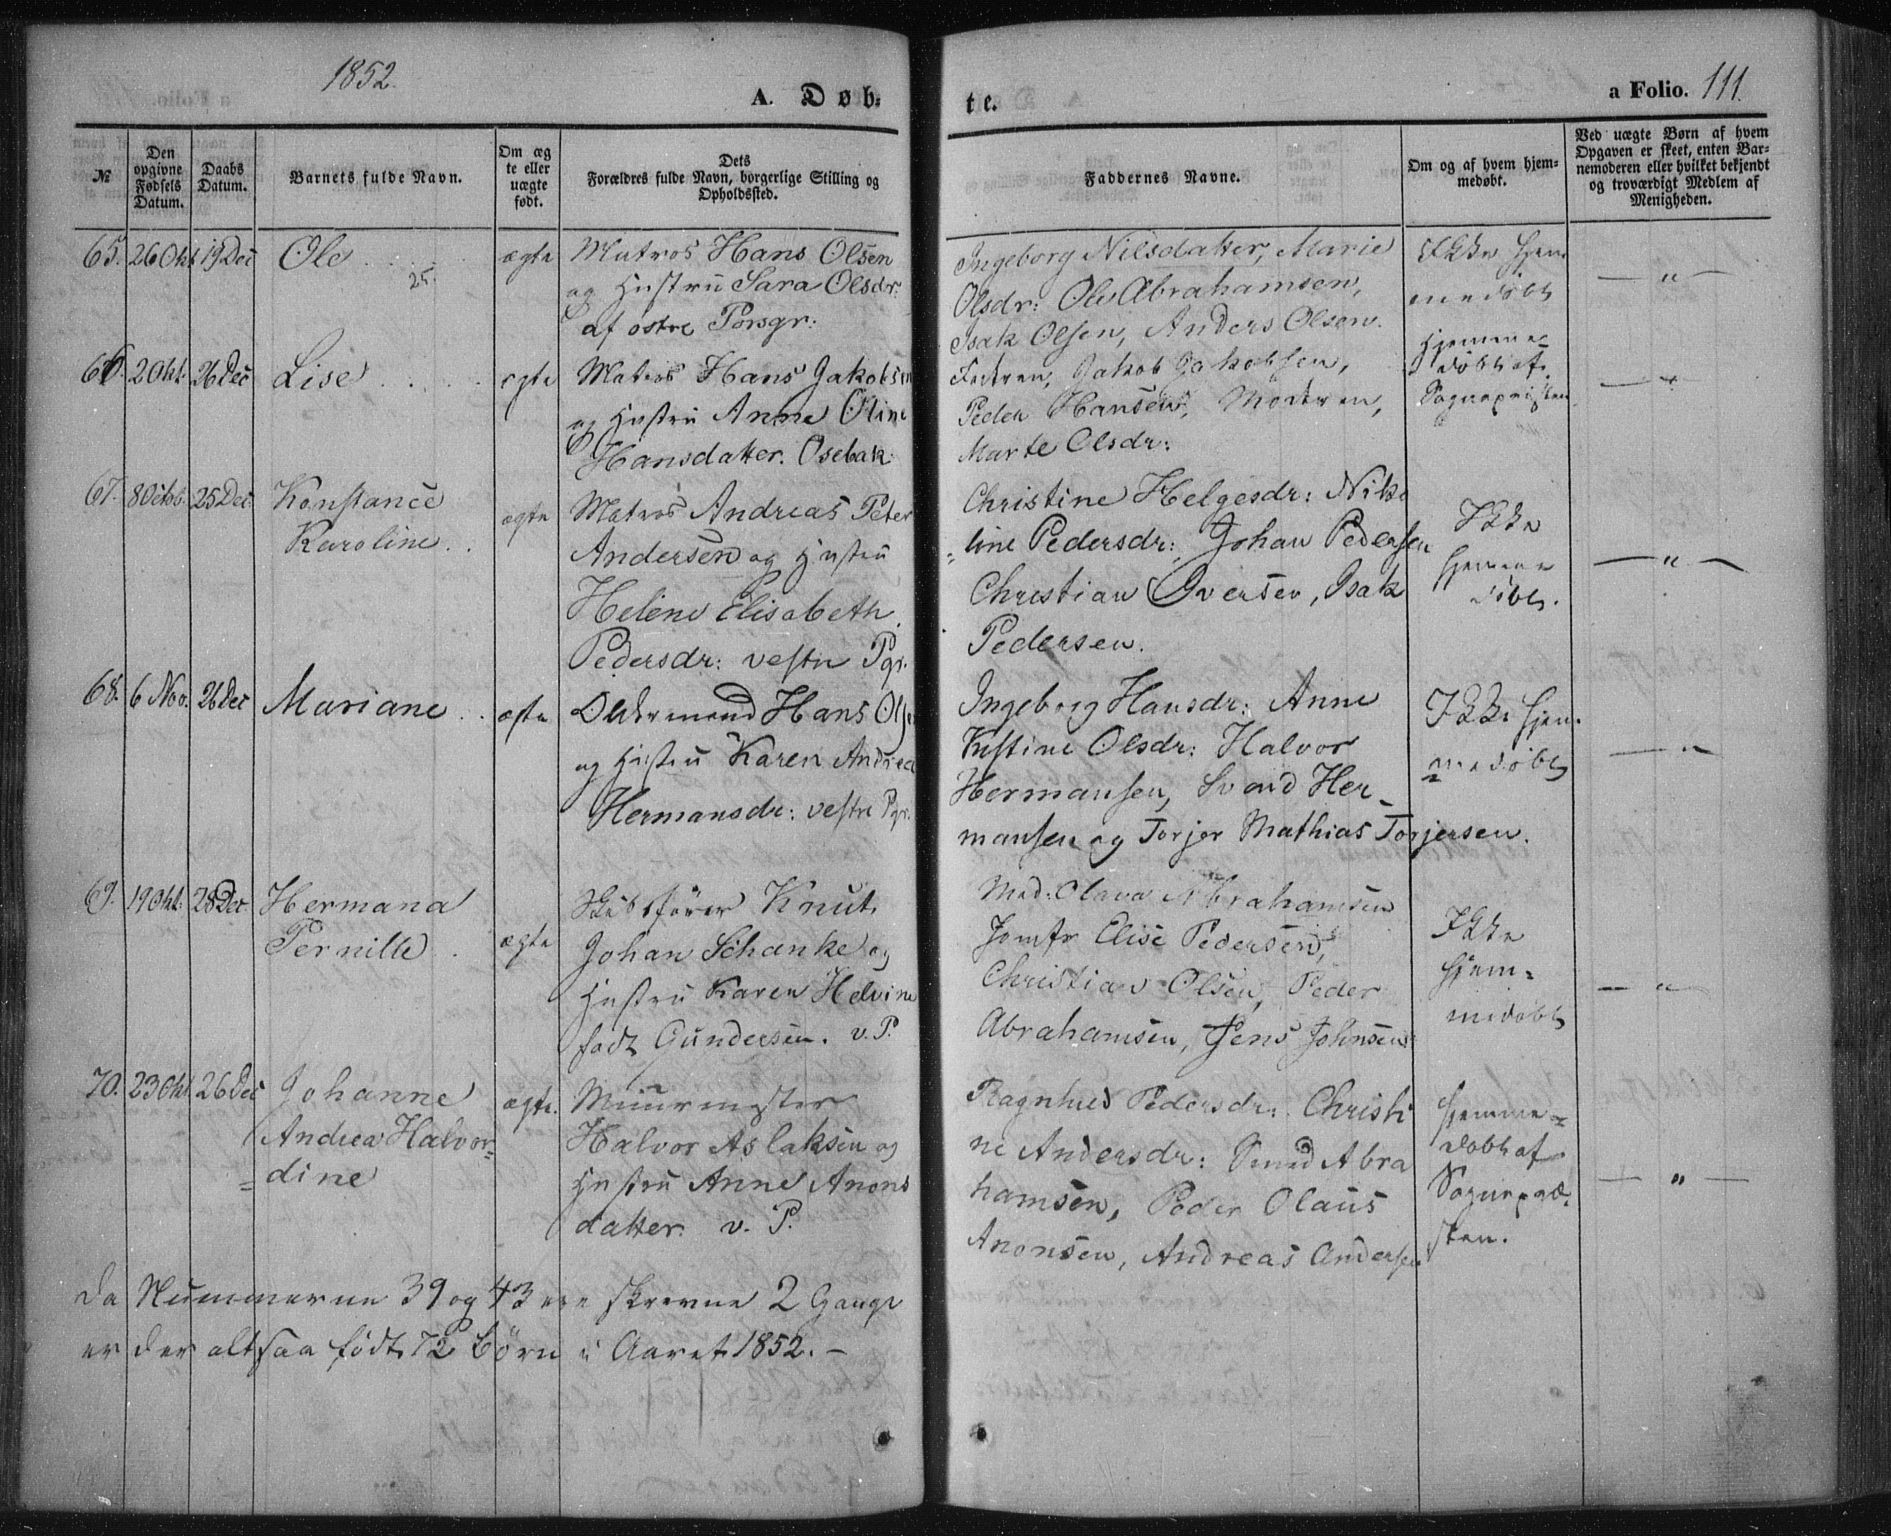 1852.
A. Døb-
№
Den
opgivne
Fødsels
Datum.
Daabs
Datum.
Barnets fulde Navn.
Om æg
te eller
uægte
født.
Dets
Forældres fulde Navn, borgerlige Stilling og
Opholdssted.
65. 26 Okt 19 Dec Ole ægte Matros Hans Olsen
25. og Hustru Sara Olsdr:
af østre Porsgr:
66. 2 Okt. 26 Dec Lise ægte Matros Hans Jakobsen
og Hustru Anne Oline
Hansdatter. Osebak.
67. 8 Octob. 25 Dec. Konstance ægte Matros Andreas Peter
Karoline Andersen og Hustru
Helene Elisabeth
Pedersdr: vestre Pgr.
68. 6 Nov. 26 Dec Mariane ægte Oldermand Hans Olsen
og Hustru Karen Andrea
Hermansdr: vestre Pgr.
69. 19 Okt. 28 Dec. Hermana ægte Skibsfører Knut
Pernille Johan Schanke og
Hustru Karen Helvine
født Gundersen. v. P.
70. 23 Okt. 26 Dec Johanne ægte. Muurmester
Andrea Halvor= Halvor Aslaksen og
=dine Hustru Anne Anons
datter. v. P.
Da Nummerne 39 og 43 ere skrevne 2 Gange
er der altsaa født 72 Børn i Aaret 1852. –
te.
a Folio. 111.
Faddernes Navne.
Om og af hvem hjem-
medøbt.
Ved uægte Børn af hvem
Opgaven er skeet, enten Bar-
nemoderen eller hvilket bekjendt
og troværdigt Medlem af
Menigheden.
Ingeborg Nilsdatter, Marie Ikke hjem
Olsdr: Ole Abrahamsen, medøbt — " —
Isak Olsen, Anders Olsen.
Faderen, Jakob Jakobsen, Hjemme=
døbt af
Peder Hansen, Moderen, Sognepresten — " —
Marte Olsdr:
Christine Helgesdr: Niko
=line Pedersdr: Johan Pedersen Ikke
Christian Iversen, Isak hjemme
døbt. — " —
Pedersen.
Ingeborg Hansdr: Anne Ikke hjem-
Kistine Olsdr: Halvor medøbt — " —
Hermansen, Svend Her-
mansen og Torjer Mathias Torjersen.
Mad: Olava Abrahamsen
Jomfr Elise Pedersen, Ikke
Christian Olsen, Peder hjem=
Abrahamsen, Jens Johnsen medøbt — " —
Ragnhild Pedersdr: Christi hjemme=
ne Andersdr: Svend Abra døbt af
hamsen, Peder Olaus Sognepræ= — " —
Anonsen, Andreas Andersen sten.